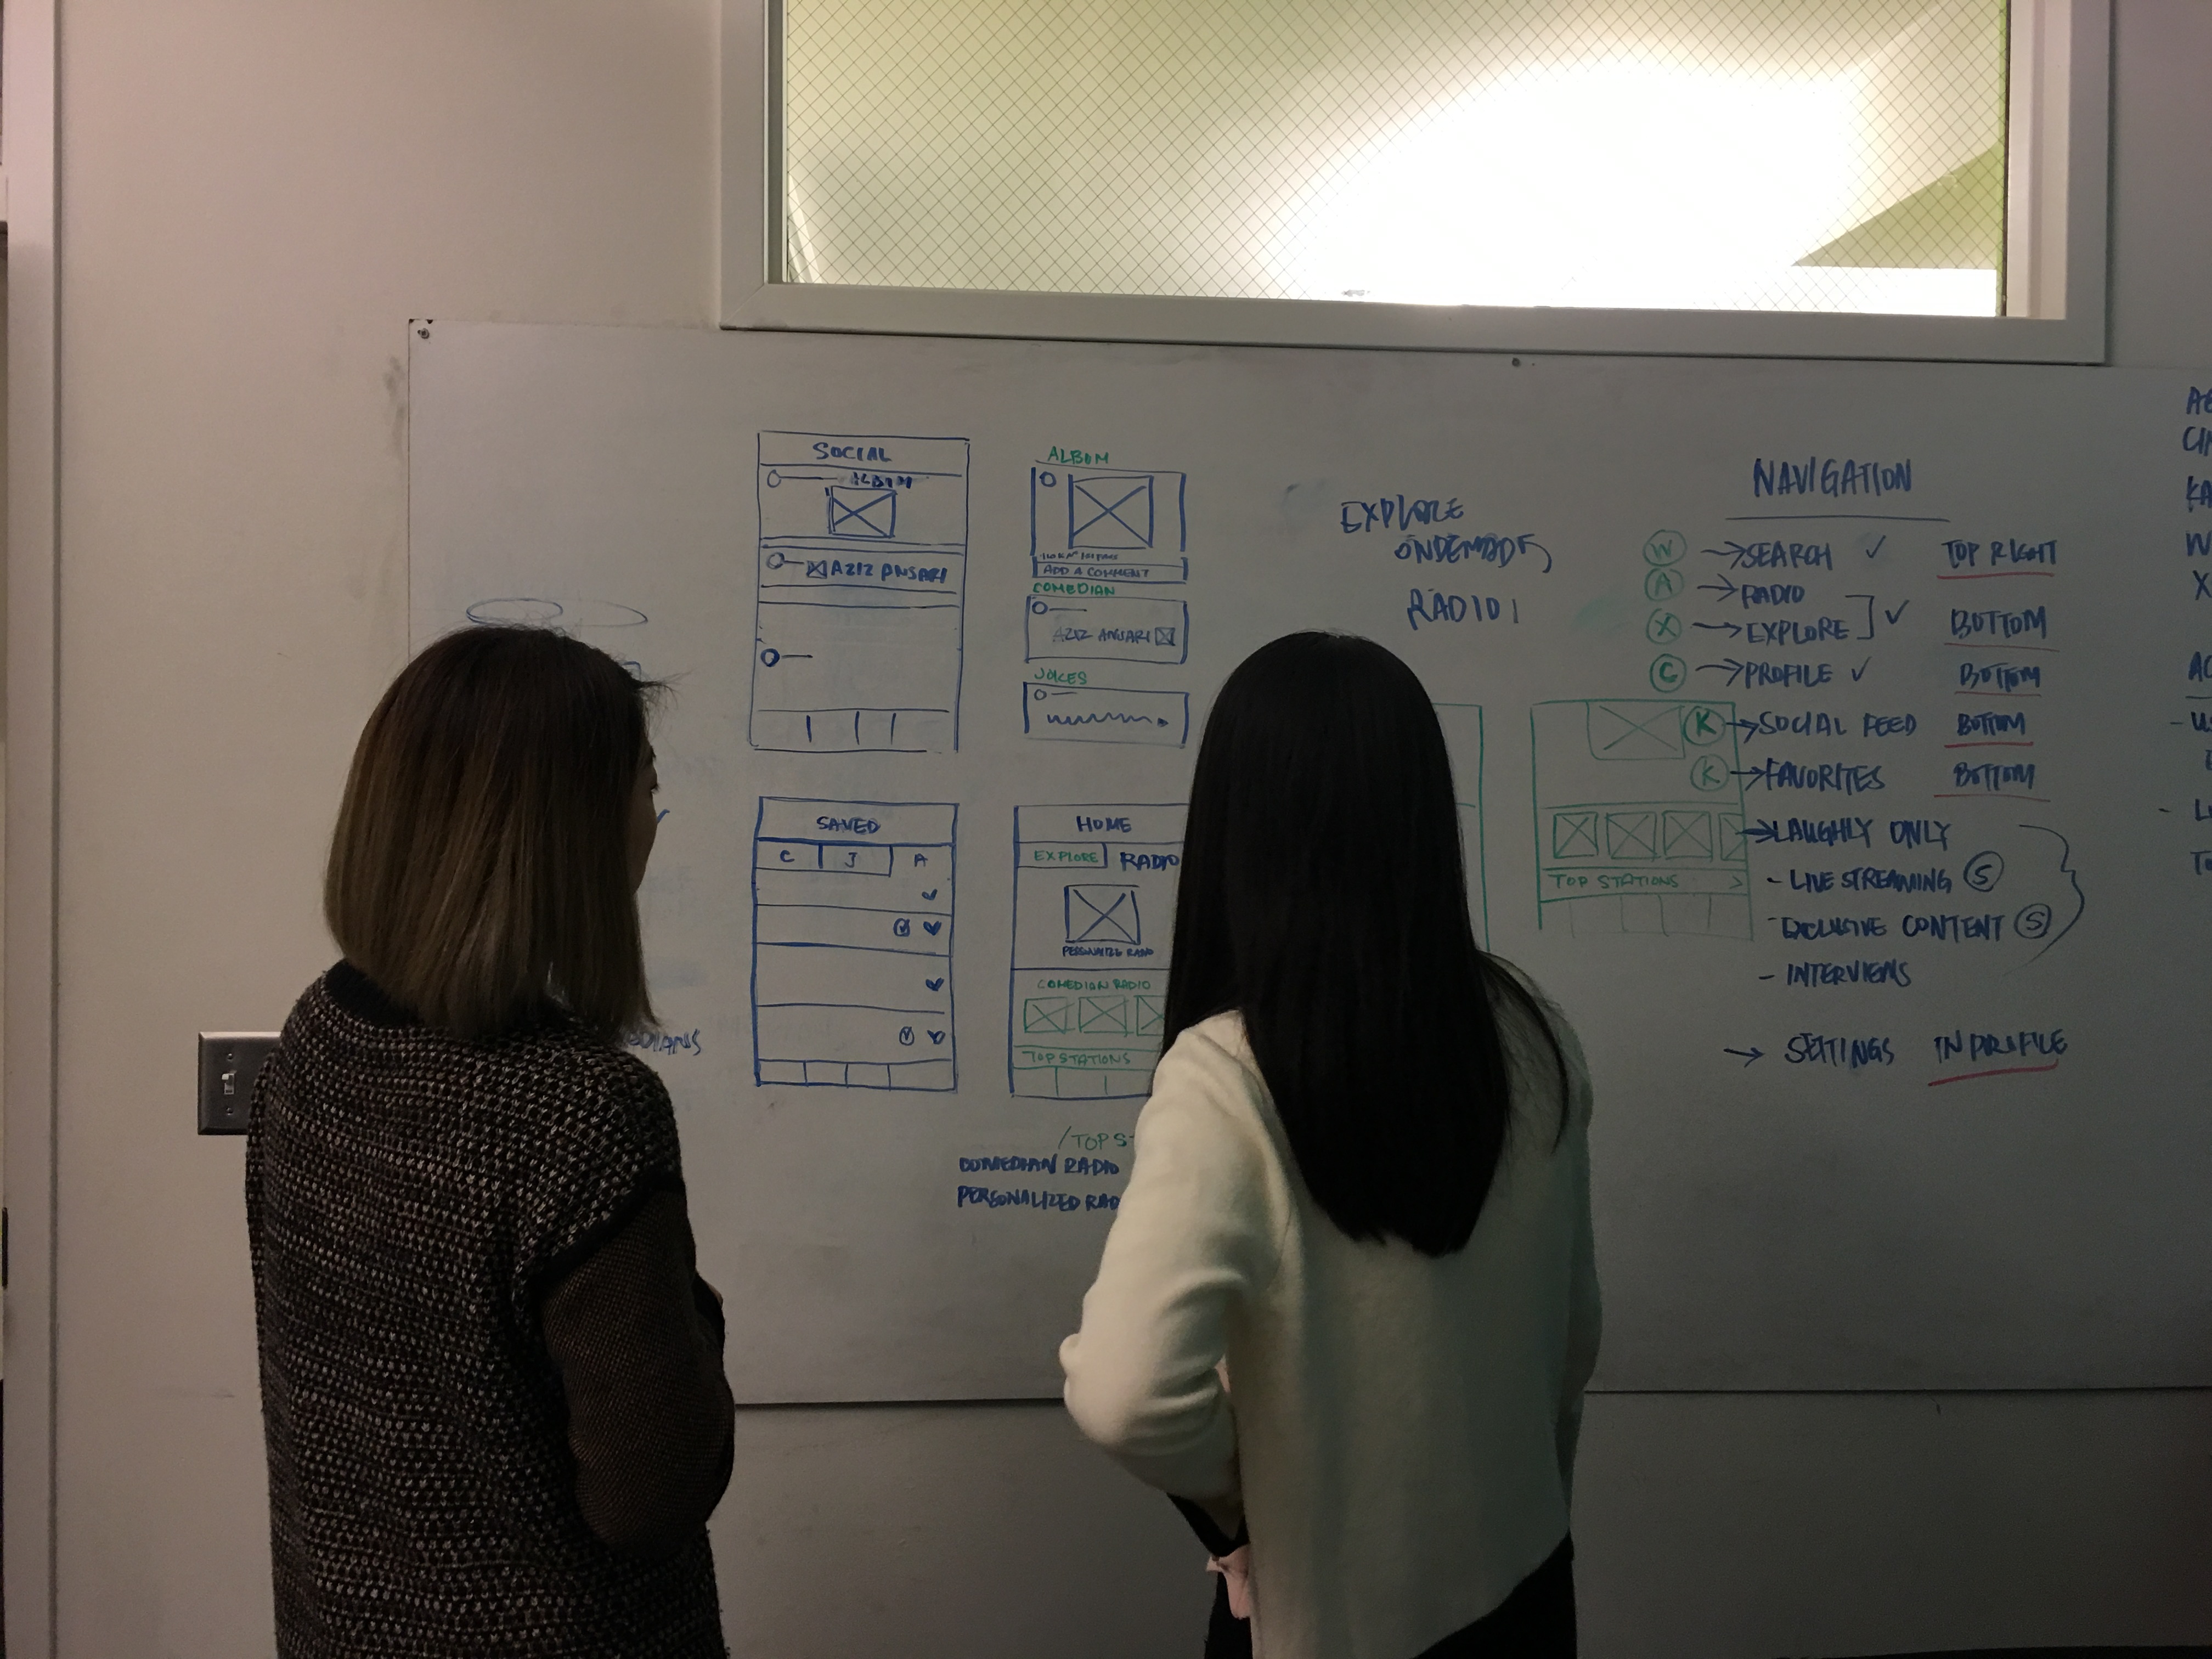 SOCIAL
ALBUM
AZIZ ANSARI
ALBUM
ADD A COMMENT
COMEDIAN
AZIZ ANSARI
JOKES
SAVED
C J A
HOME
EXPLORE RADIO
PERSONALIZE RADIO
COMEDIAN RADIO
TOP STATIONS
/TOP S
COMEDIAN RADIO
PERSONALIZED RAD
EDIANS
EXPLORE
RADIO
NAVIGATION
W → SEARCH ✓ TOP RIGHT
A → RADIO
X → EXPLORE ] ✓ BOTTOM
C → PROFILE ✓ BOTTOM
K → SOCIAL FEED BOTTOM
K → FAVORITES BOTTOM
→ LAUGHLY ONLY
- LIVE STREAMING S
- EXCLUSIVE CONTENT S
- INTERVIEWS
→ SETTINGS IN PROFILE
TOP STATIONS >
KA
W
X